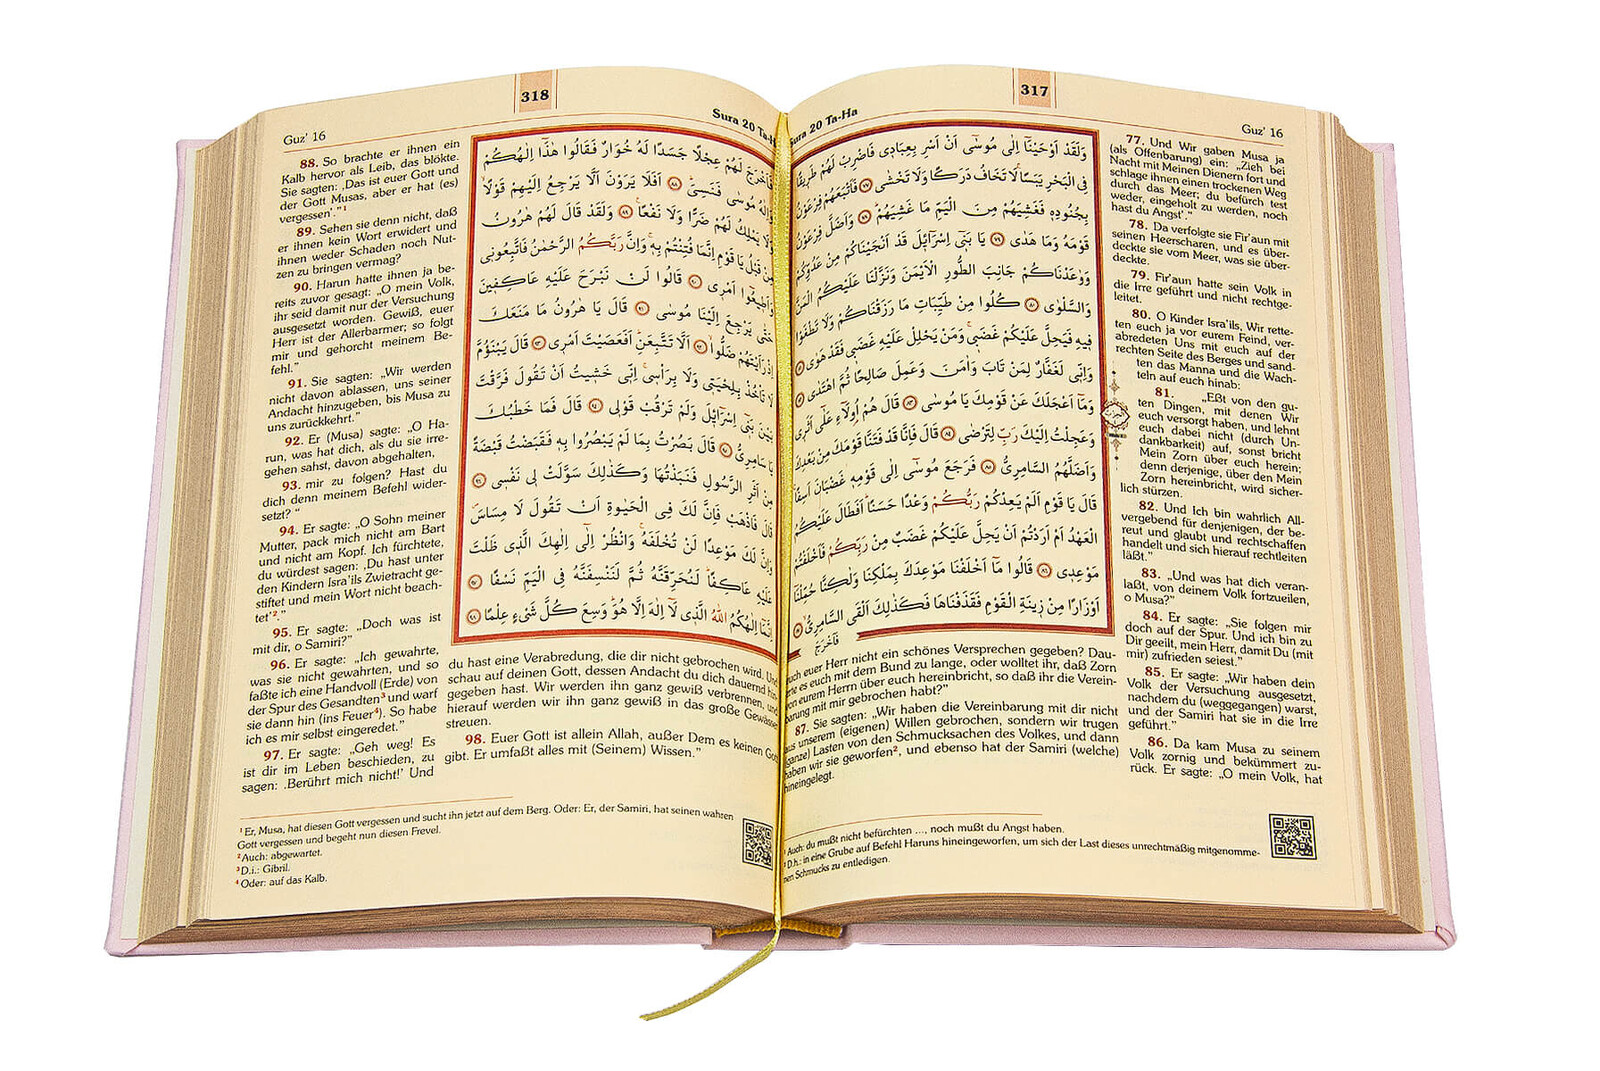 317
Sura 20 Ta-Ha
Guz' 16
وَلَقَدْ اَوْحَيْنَٓا اِلٰى مُوسٰٓى اَنْ اَسْرِ بِعِبَادٖى فَاضْرِبْ لَهُمْ طَرٖيقًا
فِى الْبَحْرِ يَبَسًا لَا تَخَافُ دَرَكًا وَلَا تَخْشٰى ٧٧ فَاَتْبَعَهُمْ فِرْعَوْنُ
بِجُنُودِهٖ فَغَشِيَهُمْ مِنَ الْيَمِّ مَا غَشِيَهُمْ ٧٨ وَاَضَلَّ فِرْعَوْنُ
قَوْمَهُ وَمَا هَدٰى ٧٩ يَا بَنٖٓى اِسْرَٓائٖلَ قَدْ اَنْجَيْنَاكُمْ مِنْ عَدُوِّكُمْ
وَوٰعَدْنَاكُمْ جَانِبَ الطُّورِ الْاَيْمَنَ وَنَزَّلْنَا عَلَيْكُمُ الْمَنَّ
وَالسَّلْوٰى ٨٠ كُلُوا مِنْ طَيِّبَاتِ مَا رَزَقْنَاكُمْ وَلَا تَطْغَوْا
فٖيهِ فَيَحِلَّ عَلَيْكُمْ غَضَبٖى وَمَنْ يَحْلِلْ عَلَيْهِ غَضَبٖى فَقَدْ هَوٰى ٨١
وَاِنّٖى لَغَفَّارٌ لِمَنْ تَابَ وَاٰمَنَ وَعَمِلَ صَالِحًا ثُمَّ اهْتَدٰى ٨٢
وَمَٓا اَعْجَلَكَ عَنْ قَوْمِكَ يَا مُوسٰى ٨٣ قَالَ هُمْ اُولَٓاءِ عَلٰٓى اَثَرٖى
وَعَجِلْتُ اِلَيْكَ رَبِّ لِتَرْضٰى ٨٤ قَالَ فَاِنَّا قَدْ فَتَنَّا قَوْمَكَ مِنْ بَعْدِكَ
وَاَضَلَّهُمُ السَّامِرِىُّ ٨٥ فَرَجَعَ مُوسٰٓى اِلٰى قَوْمِهٖ غَضْبَانَ اَسِفًا
قَالَ يَا قَوْمِ اَلَمْ يَعِدْكُمْ رَبُّكُمْ وَعْدًا حَسَنًا اَفَطَالَ عَلَيْكُمُ
الْعَهْدُ اَمْ اَرَدْتُمْ اَنْ يَحِلَّ عَلَيْكُمْ غَضَبٌ مِنْ رَبِّكُمْ فَاَخْلَفْتُمْ
مَوْعِدٖى ٨٦ قَالُوا مَٓا اَخْلَفْنَا مَوْعِدَكَ بِمَلْكِنَا وَلٰكِنَّا حُمِّلْنَٓا
اَوْزَارًا مِنْ زٖينَةِ الْقَوْمِ فَقَذَفْنَاهَا فَكَذٰلِكَ اَلْقَى السَّامِرِىُّ ٨٧
فَاَخْرَجَ
77. Und Wir gaben Musa ja
(als Offenbarung) ein: „Zieh bei
Nacht mit Meinen Dienern fort und
schlage ihnen einen trockenen Weg
durch das Meer; du befürch test
weder, eingeholt zu werden, noch
hast du Angst'."
78. Da verfolgte sie Fir'aun mit
seinen Heerscharen, und es über-
deckte sie vom Meer, was sie über-
deckte.
79. Fir'aun hatte sein Volk in
die Irre geführt und nicht rechtge-
leitet.
80. O Kinder Isra'ils, Wir rette-
ten euch ja vor eurem Feind, ver-
abredeten Uns mit euch auf der
rechten Seite des Berges und sand-
ten das Manna und die Wach-
teln auf euch hinab:
81. „Eßt von den gu-
ten Dingen, mit denen Wir
euch versorgt haben, und lehnt
euch dabei nicht (durch Un-
dankbarkeit) auf, sonst bricht
Mein Zorn über euch herein;
denn derjenige, über den Mein
Zorn hereinbricht, wird sicher-
lich stürzen.
82. Und Ich bin wahrlich All-
vergebend für denjenigen, der be-
reut und glaubt und rechtschaffen
handelt und sich hierauf rechtleiten
läßt."
83. „Und was hat dich veran-
laßt, von deinem Volk fortzueilen,
o Musa?"
84. Er sagte: „Sie folgen mir
doch auf der Spur. Und ich bin zu
Dir geeilt, mein Herr, damit Du (mit
mir) zufrieden seiest."
85. Er sagte: „Wir haben dein
Volk der Versuchung ausgesetzt,
nachdem du (weggegangen) warst,
und der Samiri hat sie in die Irre
geführt."
86. Da kam Musa zu seinem
Volk zornig und bekümmert zu-
rück. Er sagte: „O mein Volk, hat
euch euer Herr nicht ein schönes Versprechen gegeben? Dau-
erte es euch mit dem Bund zu lange, oder wolltet ihr, daß Zorn
von eurem Herrn über euch hereinbricht, so daß ihr die Verein-
barung mit mir gebrochen habt?"
87. Sie sagten: „Wir haben die Vereinbarung mit dir nicht
aus unserem (eigenen) Willen gebrochen, sondern wir trugen
(ganze) Lasten von den Schmucksachen des Volkes, und dann
haben wir sie geworfen², und ebenso hat der Samiri (welche)
hineingelegt.
Auch: du mußt nicht befürchten ..., noch mußt du Angst haben.
D.h.: in eine Grube auf Befehl Haruns hineingeworfen, um sich der Last dieses unrechtmäßig mitgenomme-
nen Schmucks zu entledigen.
318
Guz' 16
Sura 20 Ta-H
فَاَخْرَجَ لَهُمْ عِجْلًا جَسَدًا لَهُ خُوَارٌ فَقَالُوا هٰذَٓا اِلٰهُكُمْ
وَاِلٰهُ مُوسٰى فَنَسِىَ ٨٨ اَفَلَا يَرَوْنَ اَلَّا يَرْجِعُ اِلَيْهِمْ قَوْلًا
وَلَا يَمْلِكُ لَهُمْ ضَرًّا وَلَا نَفْعًا ٨٩ وَلَقَدْ قَالَ لَهُمْ هٰرُونُ
مِنْ قَبْلُ يَا قَوْمِ اِنَّمَا فُتِنْتُمْ بِهٖ وَاِنَّ رَبَّكُمُ الرَّحْمٰنُ فَاتَّبِعُونٖى
وَاَطٖيعُٓوا اَمْرٖى ٩٠ قَالُوا لَنْ نَبْرَحَ عَلَيْهِ عَاكِفٖينَ
حَتّٰى يَرْجِعَ اِلَيْنَا مُوسٰى ٩١ قَالَ يَا هٰرُونُ مَا مَنَعَكَ
اِذْ رَاَيْتَهُمْ ضَلُّوا ٩٢ اَلَّا تَتَّبِعَنِ اَفَعَصَيْتَ اَمْرٖى ٩٣ قَالَ يَبْنَؤُمَّ
لَا تَأْخُذْ بِلِحْيَتٖى وَلَا بِرَأْسٖى اِنّٖى خَشٖيتُ اَنْ تَقُولَ فَرَّقْتَ
بَيْنَ بَنٖٓى اِسْرَٓائٖلَ وَلَمْ تَرْقُبْ قَوْلٖى ٩٤ قَالَ فَمَا خَطْبُكَ
يَا سَامِرِىُّ ٩٥ قَالَ بَصُرْتُ بِمَا لَمْ يَبْصُرُوا بِهٖ فَقَبَضْتُ قَبْضَةً
مِنْ اَثَرِ الرَّسُولِ فَنَبَذْتُهَا وَكَذٰلِكَ سَوَّلَتْ لٖى نَفْسٖى ٩٦
قَالَ فَاذْهَبْ فَاِنَّ لَكَ فِى الْحَيٰوةِ اَنْ تَقُولَ لَا مِسَاسَ
وَاِنَّ لَكَ مَوْعِدًا لَنْ تُخْلَفَهُ وَانْظُرْ اِلٰٓى اِلٰهِكَ الَّذٖى ظَلْتَ
عَلَيْهِ عَاكِفًا لَنُحَرِّقَنَّهُ ثُمَّ لَنَنْسِفَنَّهُ فِى الْيَمِّ نَسْفًا ٩٧
اِنَّمَٓا اِلٰهُكُمُ اللّٰهُ الَّذٖى لَٓا اِلٰهَ اِلَّا هُوَ وَسِعَ كُلَّ شَىْءٍ عِلْمًا ٩٨
88. So brachte er ihnen ein
Kalb hervor als Leib, das blökte.
Sie sagten: ‚Das ist euer Gott und
der Gott Musas, aber er hat (es)
vergessen'."¹
89. Sehen sie denn nicht, daß
er ihnen kein Wort erwidert und
ihnen weder Schaden noch Nut-
zen zu bringen vermag?
90. Harun hatte ihnen ja be-
reits zuvor gesagt: „O mein Volk,
ihr seid damit nur der Versuchung
ausgesetzt worden. Gewiß, euer
Herr ist der Allerbarmer; so folgt
mir und gehorcht meinem Be-
fehl."
91. Sie sagten: „Wir werden
nicht davon ablassen, uns seiner
Andacht hinzugeben, bis Musa zu
uns zurückkehrt."
92. Er (Musa) sagte: „O Ha-
run, was hat dich, als du sie irre-
gehen sahst, davon abgehalten,
93. mir zu folgen? Hast du
dich denn meinem Befehl wider-
setzt? "
94. Er sagte: „O Sohn meiner
Mutter, pack mich nicht am Bart
und nicht am Kopf. Ich fürchtete,
du würdest sagen: ‚Du hast unter
den Kindern Isra'ils Zwietracht ge-
stiftet und mein Wort nicht beach-
tet'²."
95. Er sagte: „Doch was ist
mit dir, o Samiri?"
96. Er sagte: „Ich gewahrte,
was sie nicht gewahrten, und so
faßte ich eine Handvoll (Erde) von
der Spur des Gesandten³ und warf
sie dann hin (ins Feuer⁴). So habe
ich es mir selbst eingeredet."
97. Er sagte: „Geh weg! Es
ist dir im Leben beschieden, zu
sagen: ‚Berührt mich nicht!' Und
du hast eine Verabredung, die dir nicht gebrochen wird. Und
schau auf deinen Gott, dessen Andacht du dich dauernd hin
gegeben hast. Wir werden ihn ganz gewiß verbrennen, und
hierauf werden wir ihn ganz gewiß in das große Gewässer
streuen.
98. Euer Gott ist allein Allah, außer Dem es keinen Gott
gibt. Er umfaßt alles mit (Seinem) Wissen."
¹ Er, Musa, hat diesen Gott vergessen und sucht ihn jetzt auf dem Berg. Oder: Er, der Samiri, hat seinen wahren
Gott vergessen und begeht nun diesen Frevel.
² Auch: abgewartet.
³ D.i.: Gibril.
⁴ Oder: auf das Kalb.